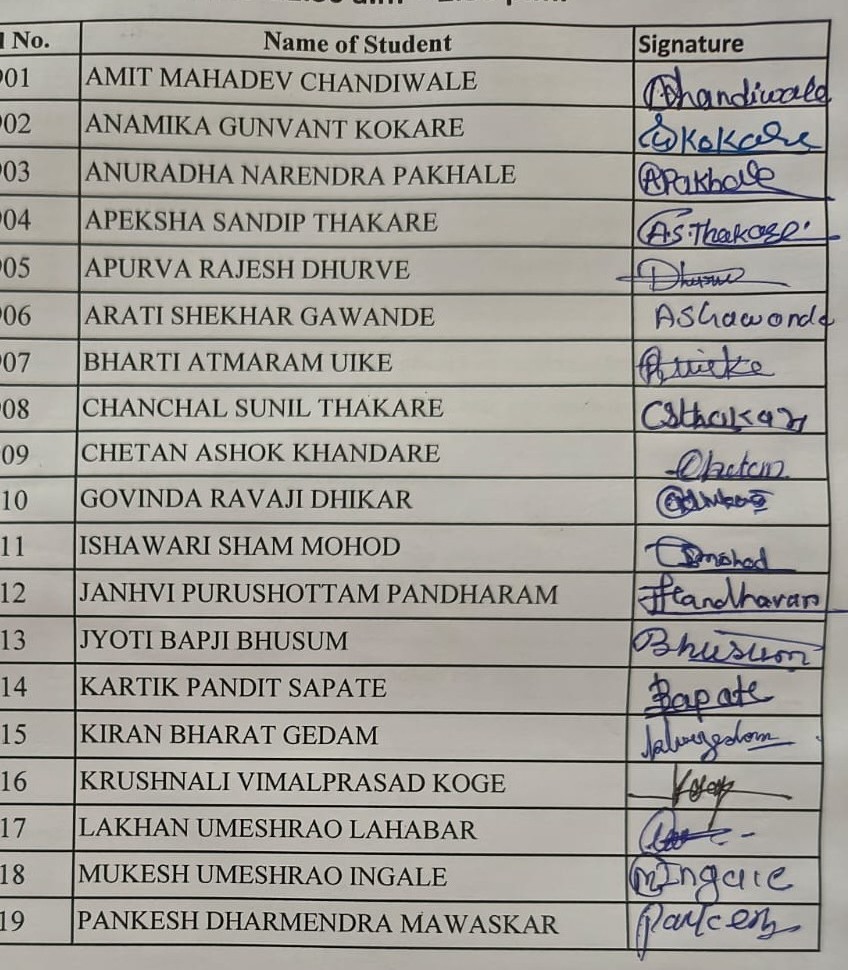 l No. Name of Student Signature
901 AMIT MAHADEV CHANDIWALE Chandiwale
902 ANAMIKA GUNVANT KOKARE Kokare
903 ANURADHA NARENDRA PAKHALE APakhale
904 APEKSHA SANDIP THAKARE A.S.Thakare
905 APURVA RAJESH DHURVE
906 ARATI SHEKHAR GAWANDE ASGawande
907 BHARTI ATMARAM UIKE
908 CHANCHAL SUNIL THAKARE CSthakare
909 CHETAN ASHOK KHANDARE Chetan
10 GOVINDA RAVAJI DHIKAR
11 ISHAWARI SHAM MOHOD
12 JANHVI PURUSHOTTAM PANDHARAM
13 JYOTI BAPJI BHUSUM Bhusum
14 KARTIK PANDIT SAPATE Sapate
15 KIRAN BHARAT GEDAM
16 KRUSHNALI VIMALPRASAD KOGE
17 LAKHAN UMESHRAO LAHABAR
18 MUKESH UMESHRAO INGALE MIngale
19 PANKESH DHARMENDRA MAWASKAR Pankesh